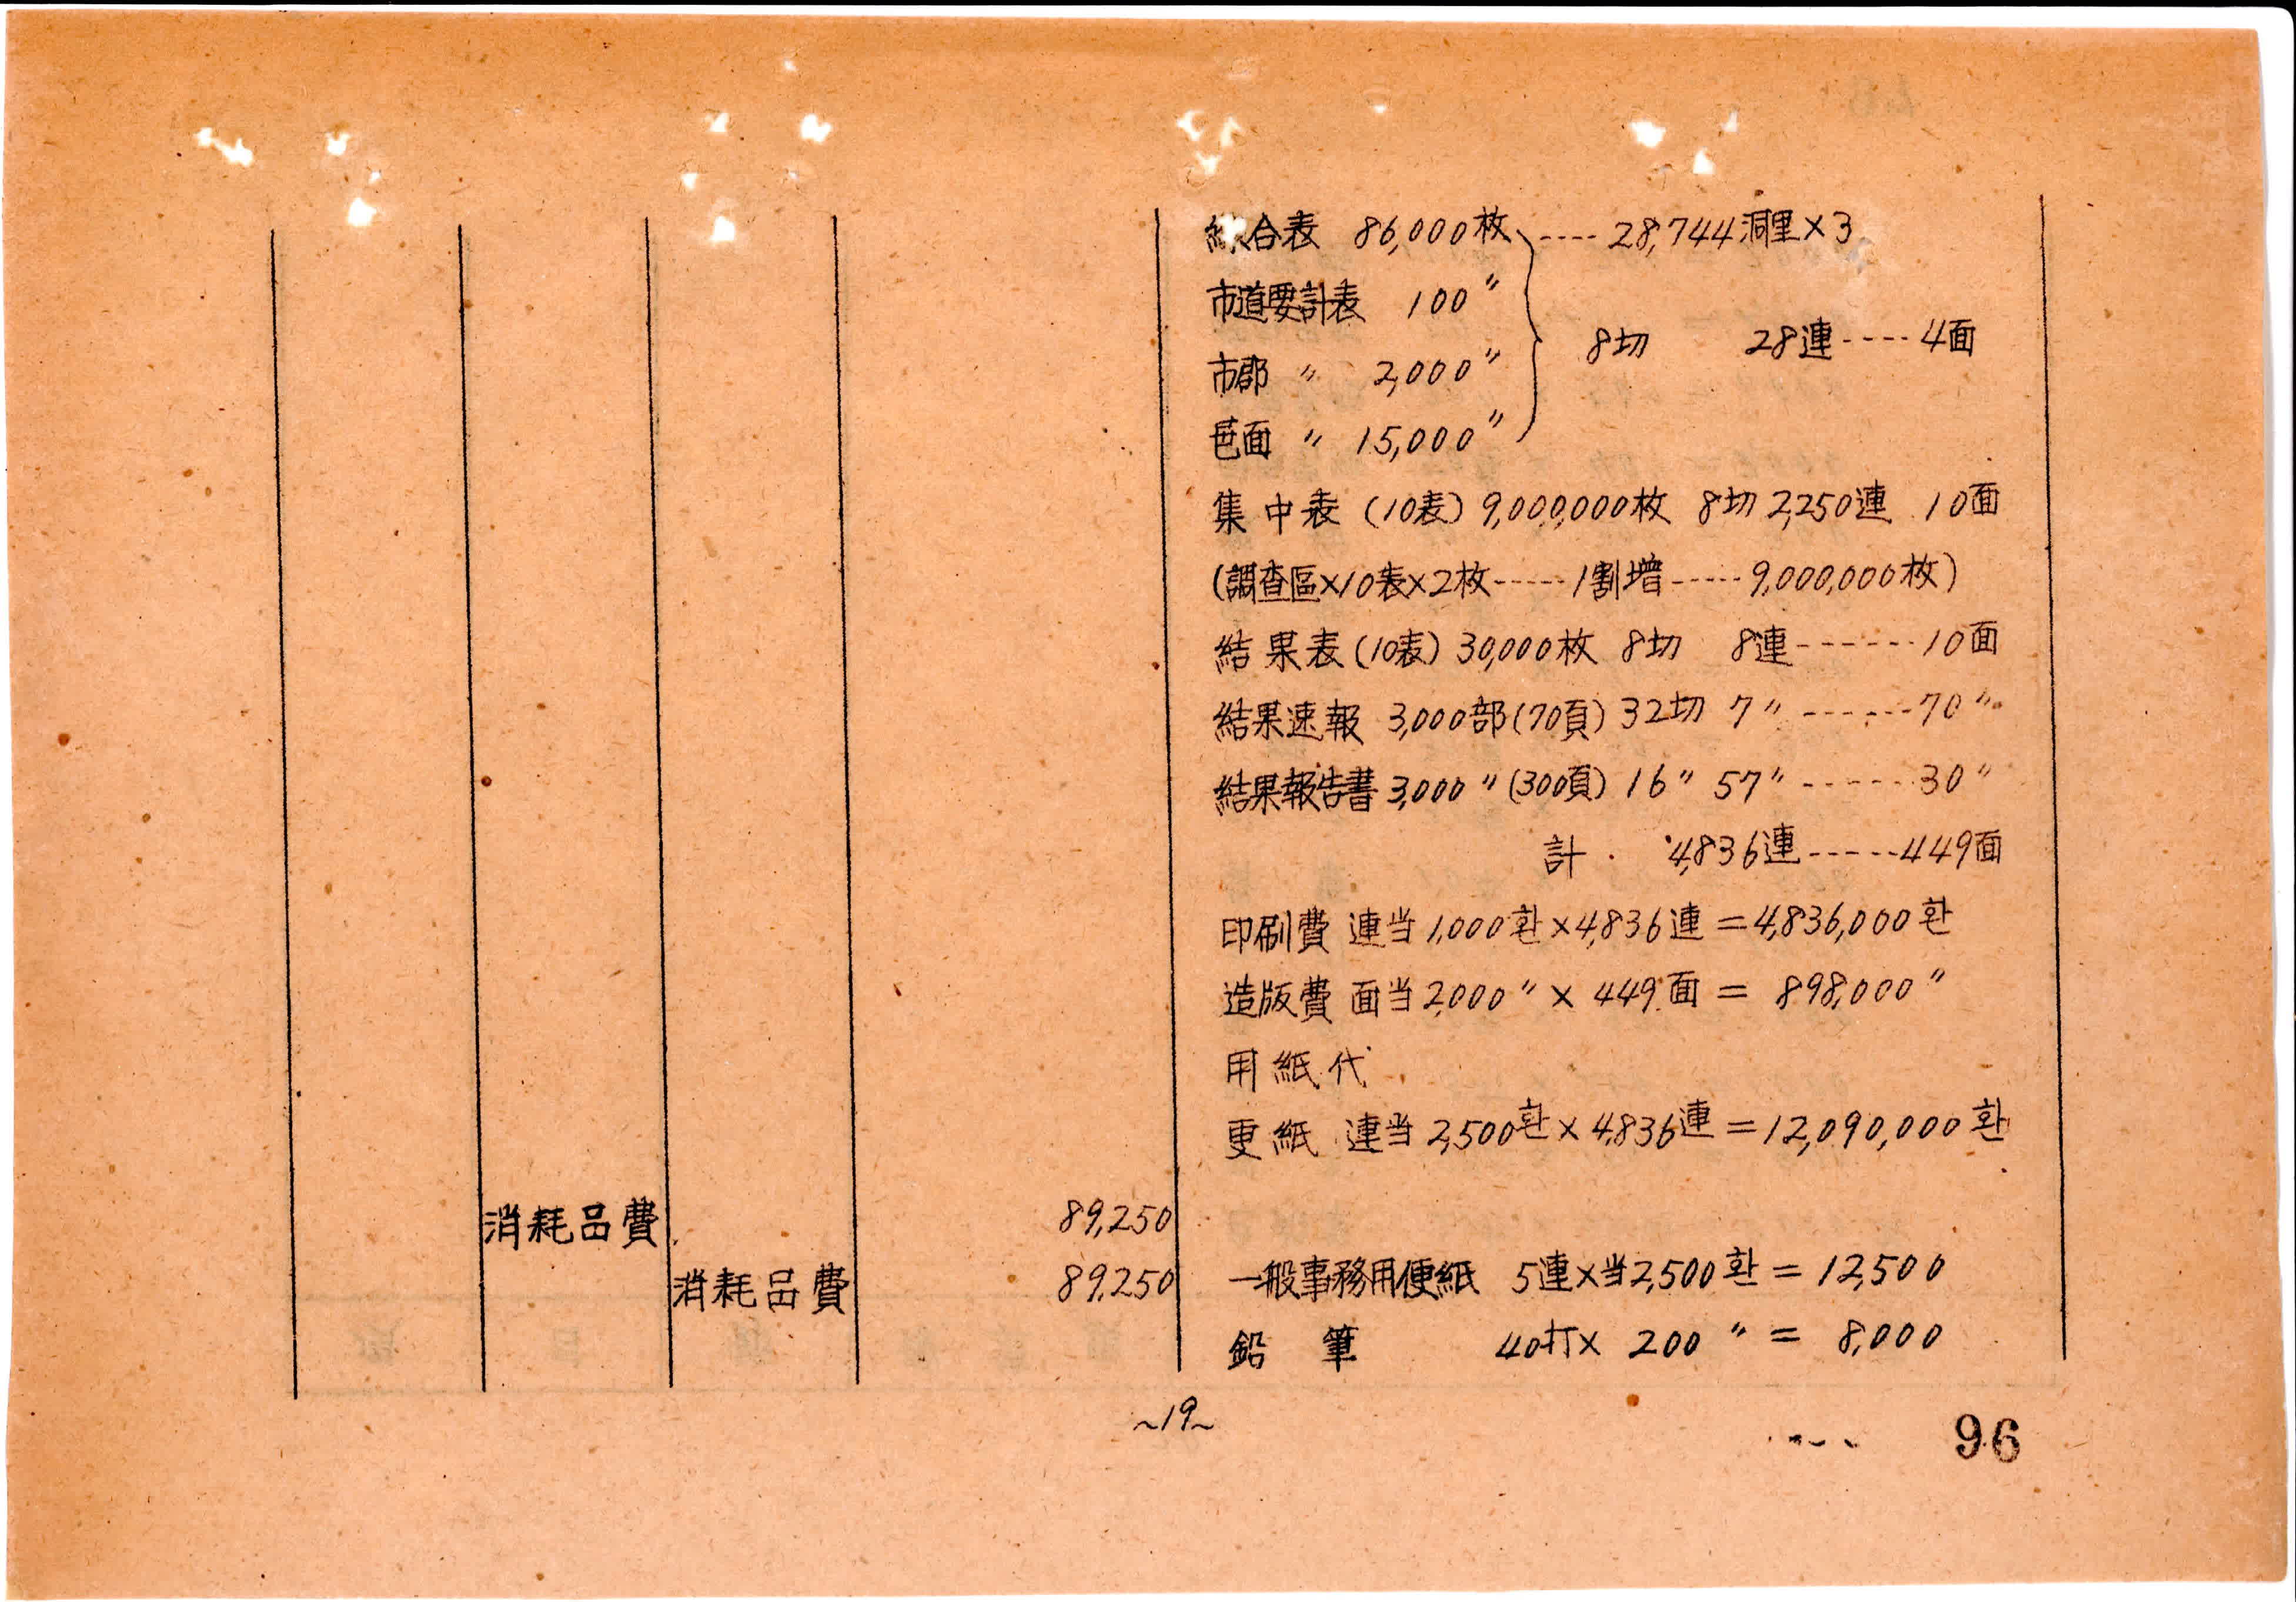 綜合表 86,000枚 ---- 28,744洞里×3
市道要計表 100〃
8切 28連----4面
市郡 〃 2,000〃
邑面 〃 15,000〃
集中表 (10表) 9,000,000枚 8切 2,250連 10面
(調査區×10表×2枚-----1割增-----9,000,000枚)
結果表(10表) 30,000枚 8切 8連------10面
結果速報 3,000部(70頁) 32切 7〃 ------70〃
結果報告書 3,000〃(300頁) 16〃 57〃 ------30〃
計 4,836連-----449面
印刷費 連当1,000환×4,836連=4,836,000환
造版費 面当2,000〃×449面= 898,000〃
用紙代
更紙 連当2,500환×4,836連=12,090,000환
消耗品費 89,250
消耗品費 89,250 一般事務用便紙 5連×当2,500환=12,500
鉛筆 40打× 200〃= 8,000
~19~
96